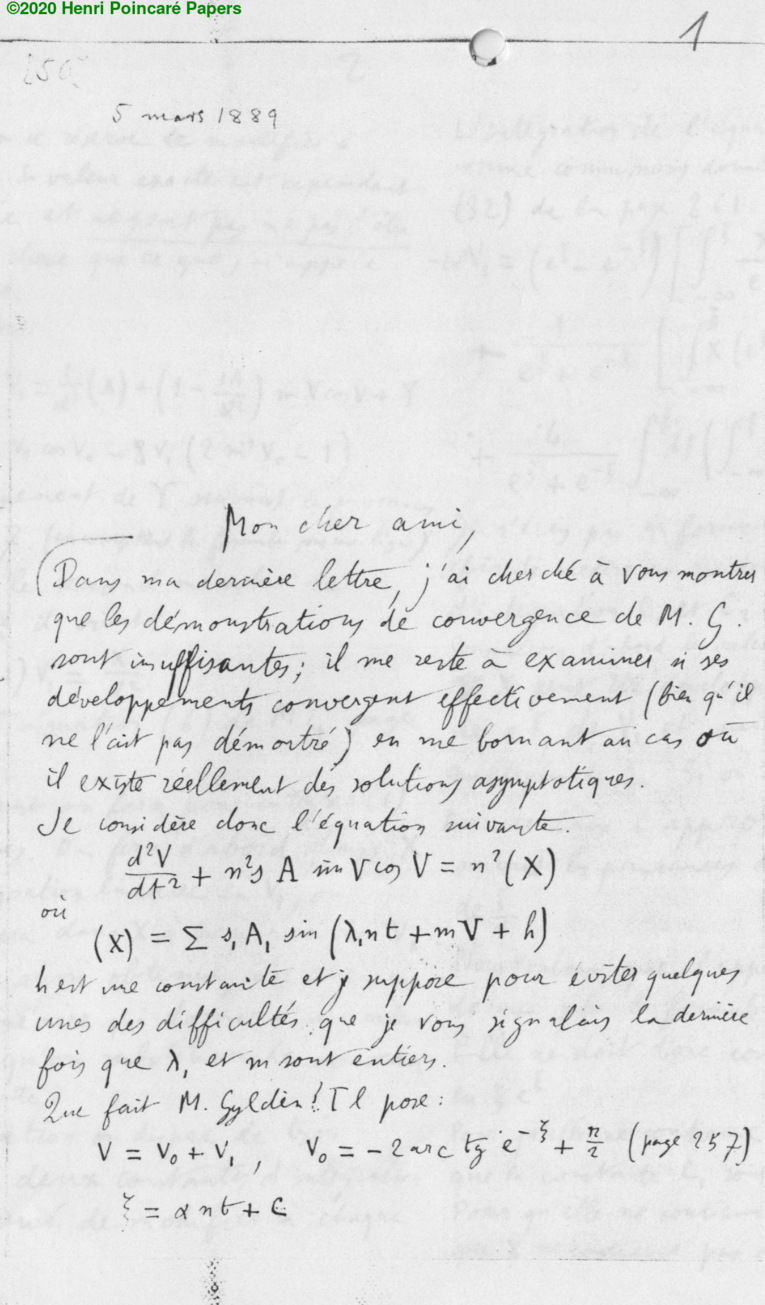 ©2020 Henri Poincaré Papers
1
5 mars 1889
Mon cher ami,
Dans ma dernière lettre, j'ai cherché à vous montrer
que les démonstrations de convergence de M. G.
sont insuffisantes; il me reste à examiner si ses
développements convergent effectivement (bien qu'il
ne l'ait pas démontré) en me bornant au cas où
il existe réellement des solutions asymptotiques.
Je considère donc l'équation suivante.
d²V/dt² + n²s A sin V cos V = n²(X)
où
(X) = Σ s₁ A₁ sin (λ₁nt + mV + h)
h est une constante et je suppose pour éviter quelques
unes des difficultés que je vous signalais la dernière
fois que λ₁ et m sont entiers.
Que fait M. Gyldèn? Il pose:
V = V₀ + V₁, V₀ = -2 arc tg e^{-ξ} + π/2 (page 257)
ξ = α nt + C